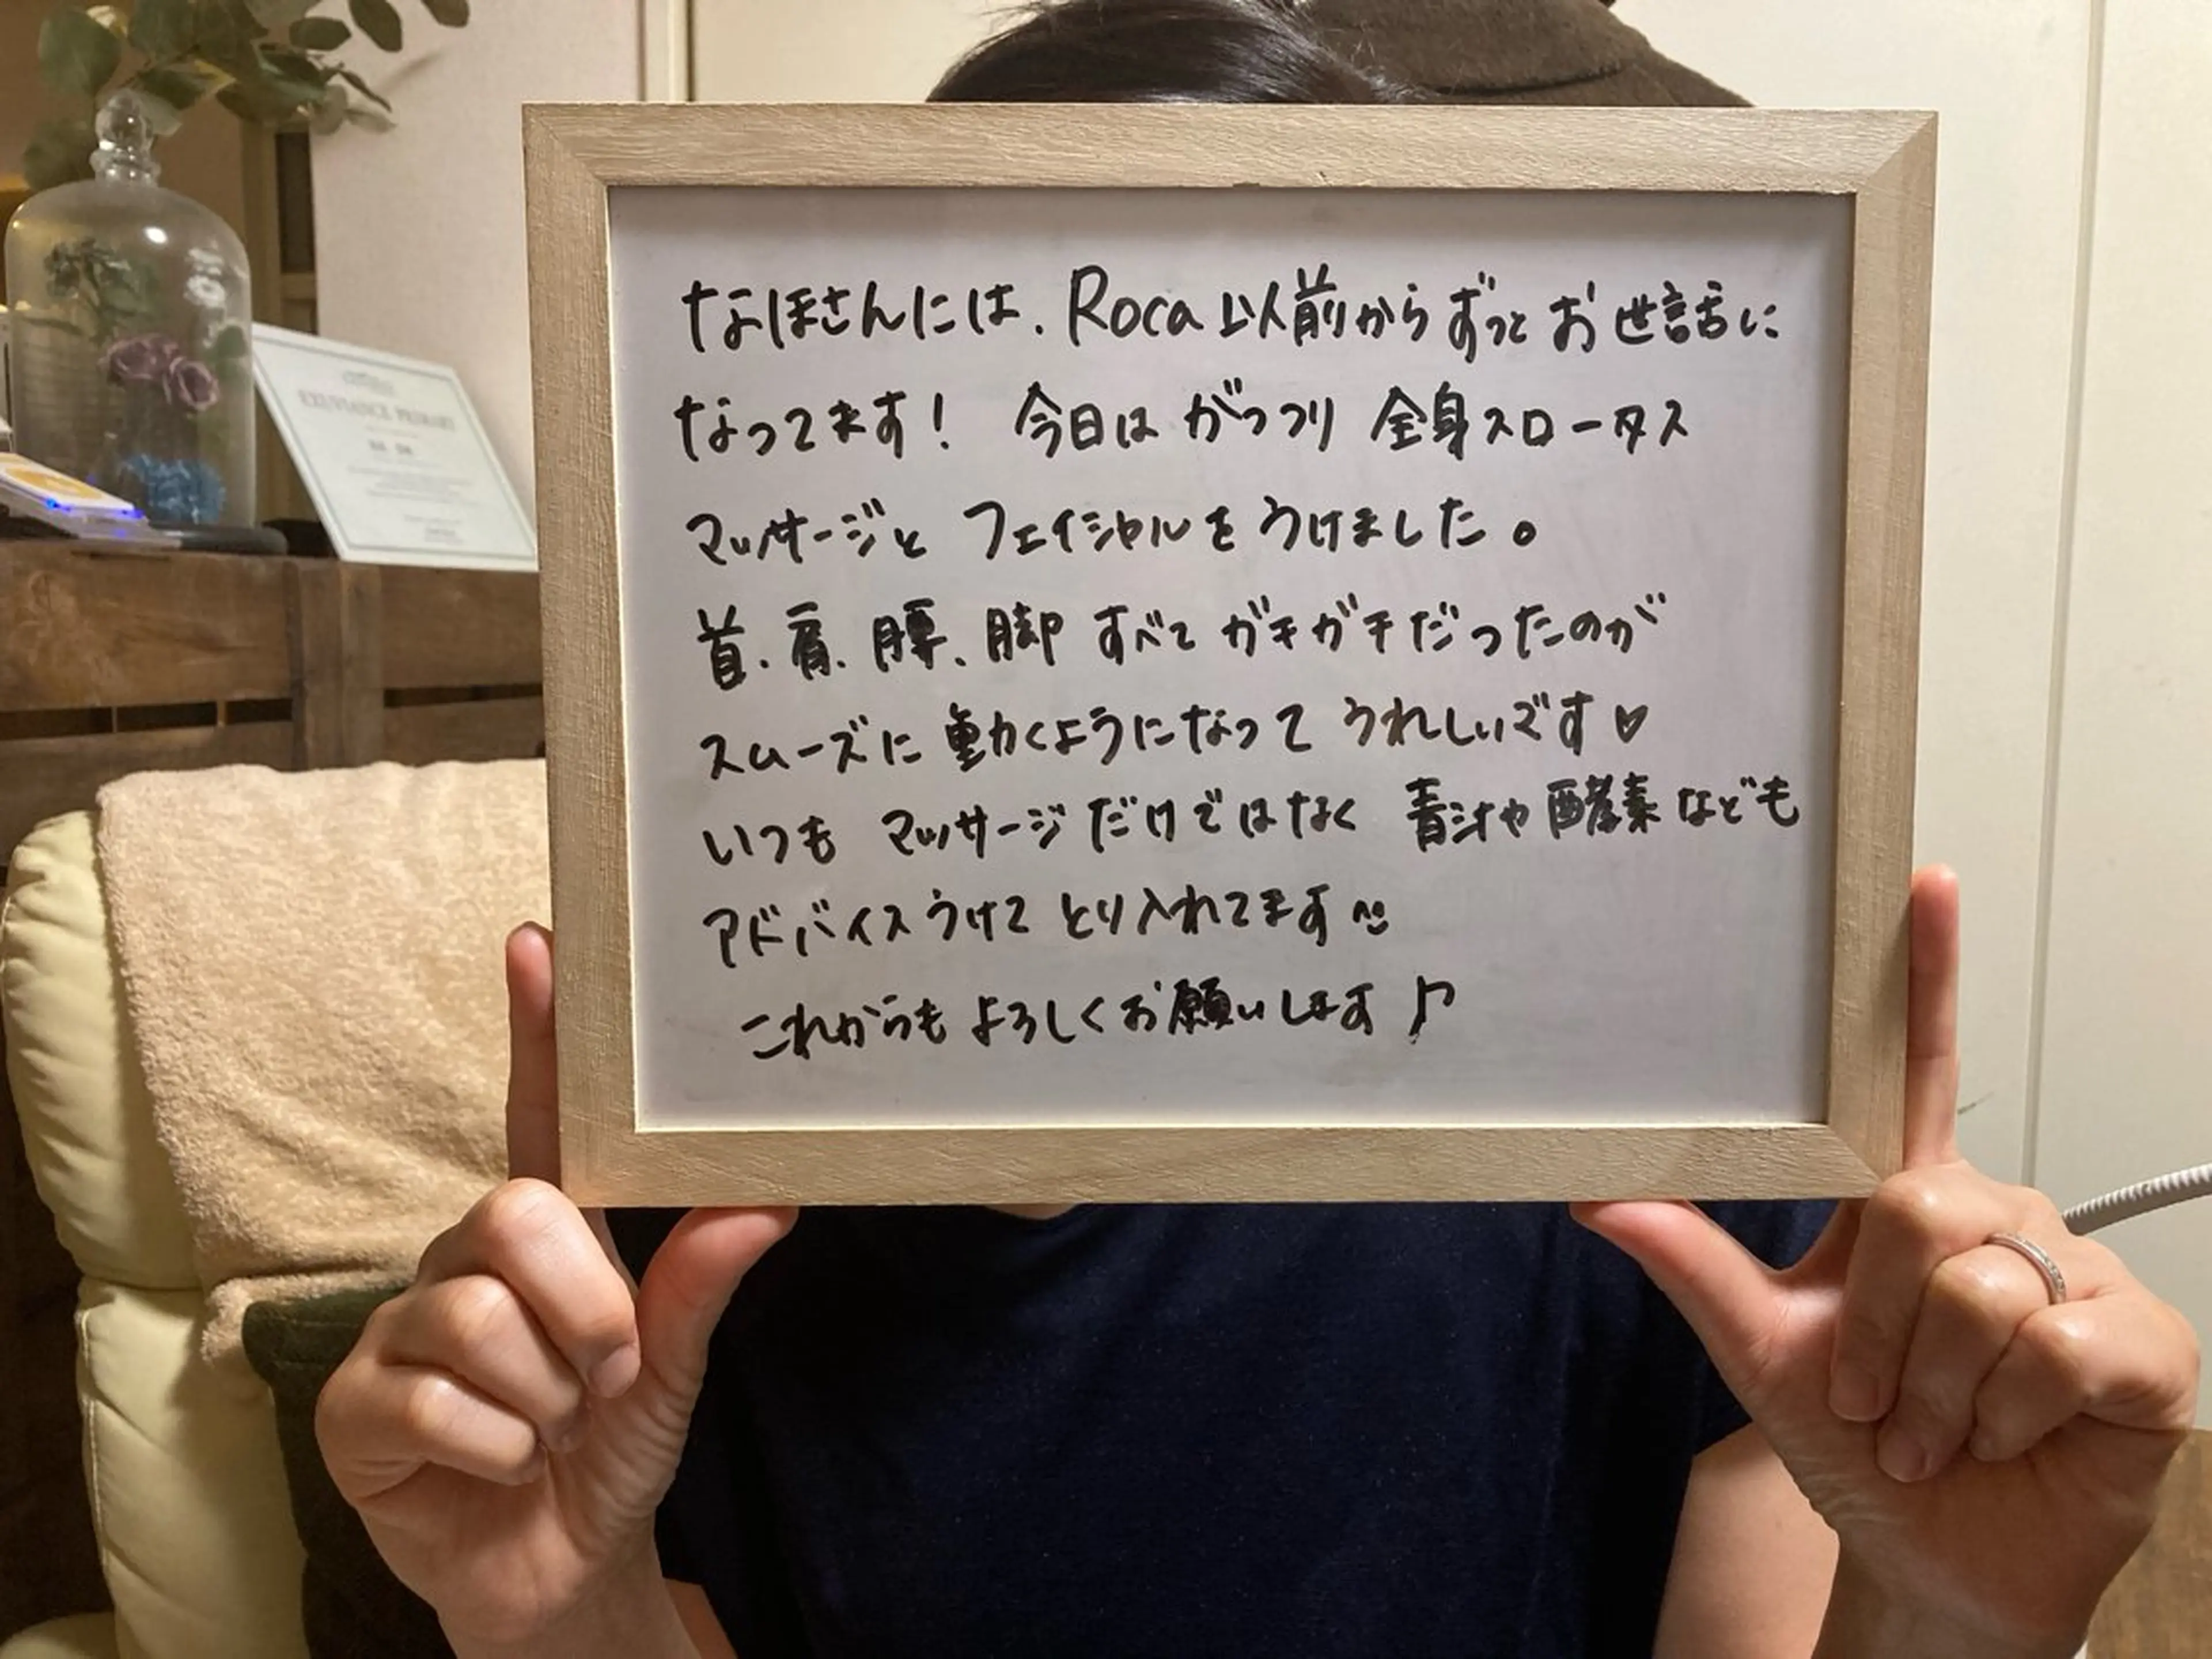 なほさんには、Roca以前からずっとお世話に
なってます！ 今日は がっつり 全身スロータス
マッサージと フェイシャルを うけました。
首、肩、腰、脚 すべて ガチガチだったのが
スムーズに 動くようになって うれしいです♡
いつも マッサージだけではなく 青汁や酵素なども
アドバイスうけて とり入れてます^^
これからも よろしくお願いします♪
EXUVIANCE PRIMARY